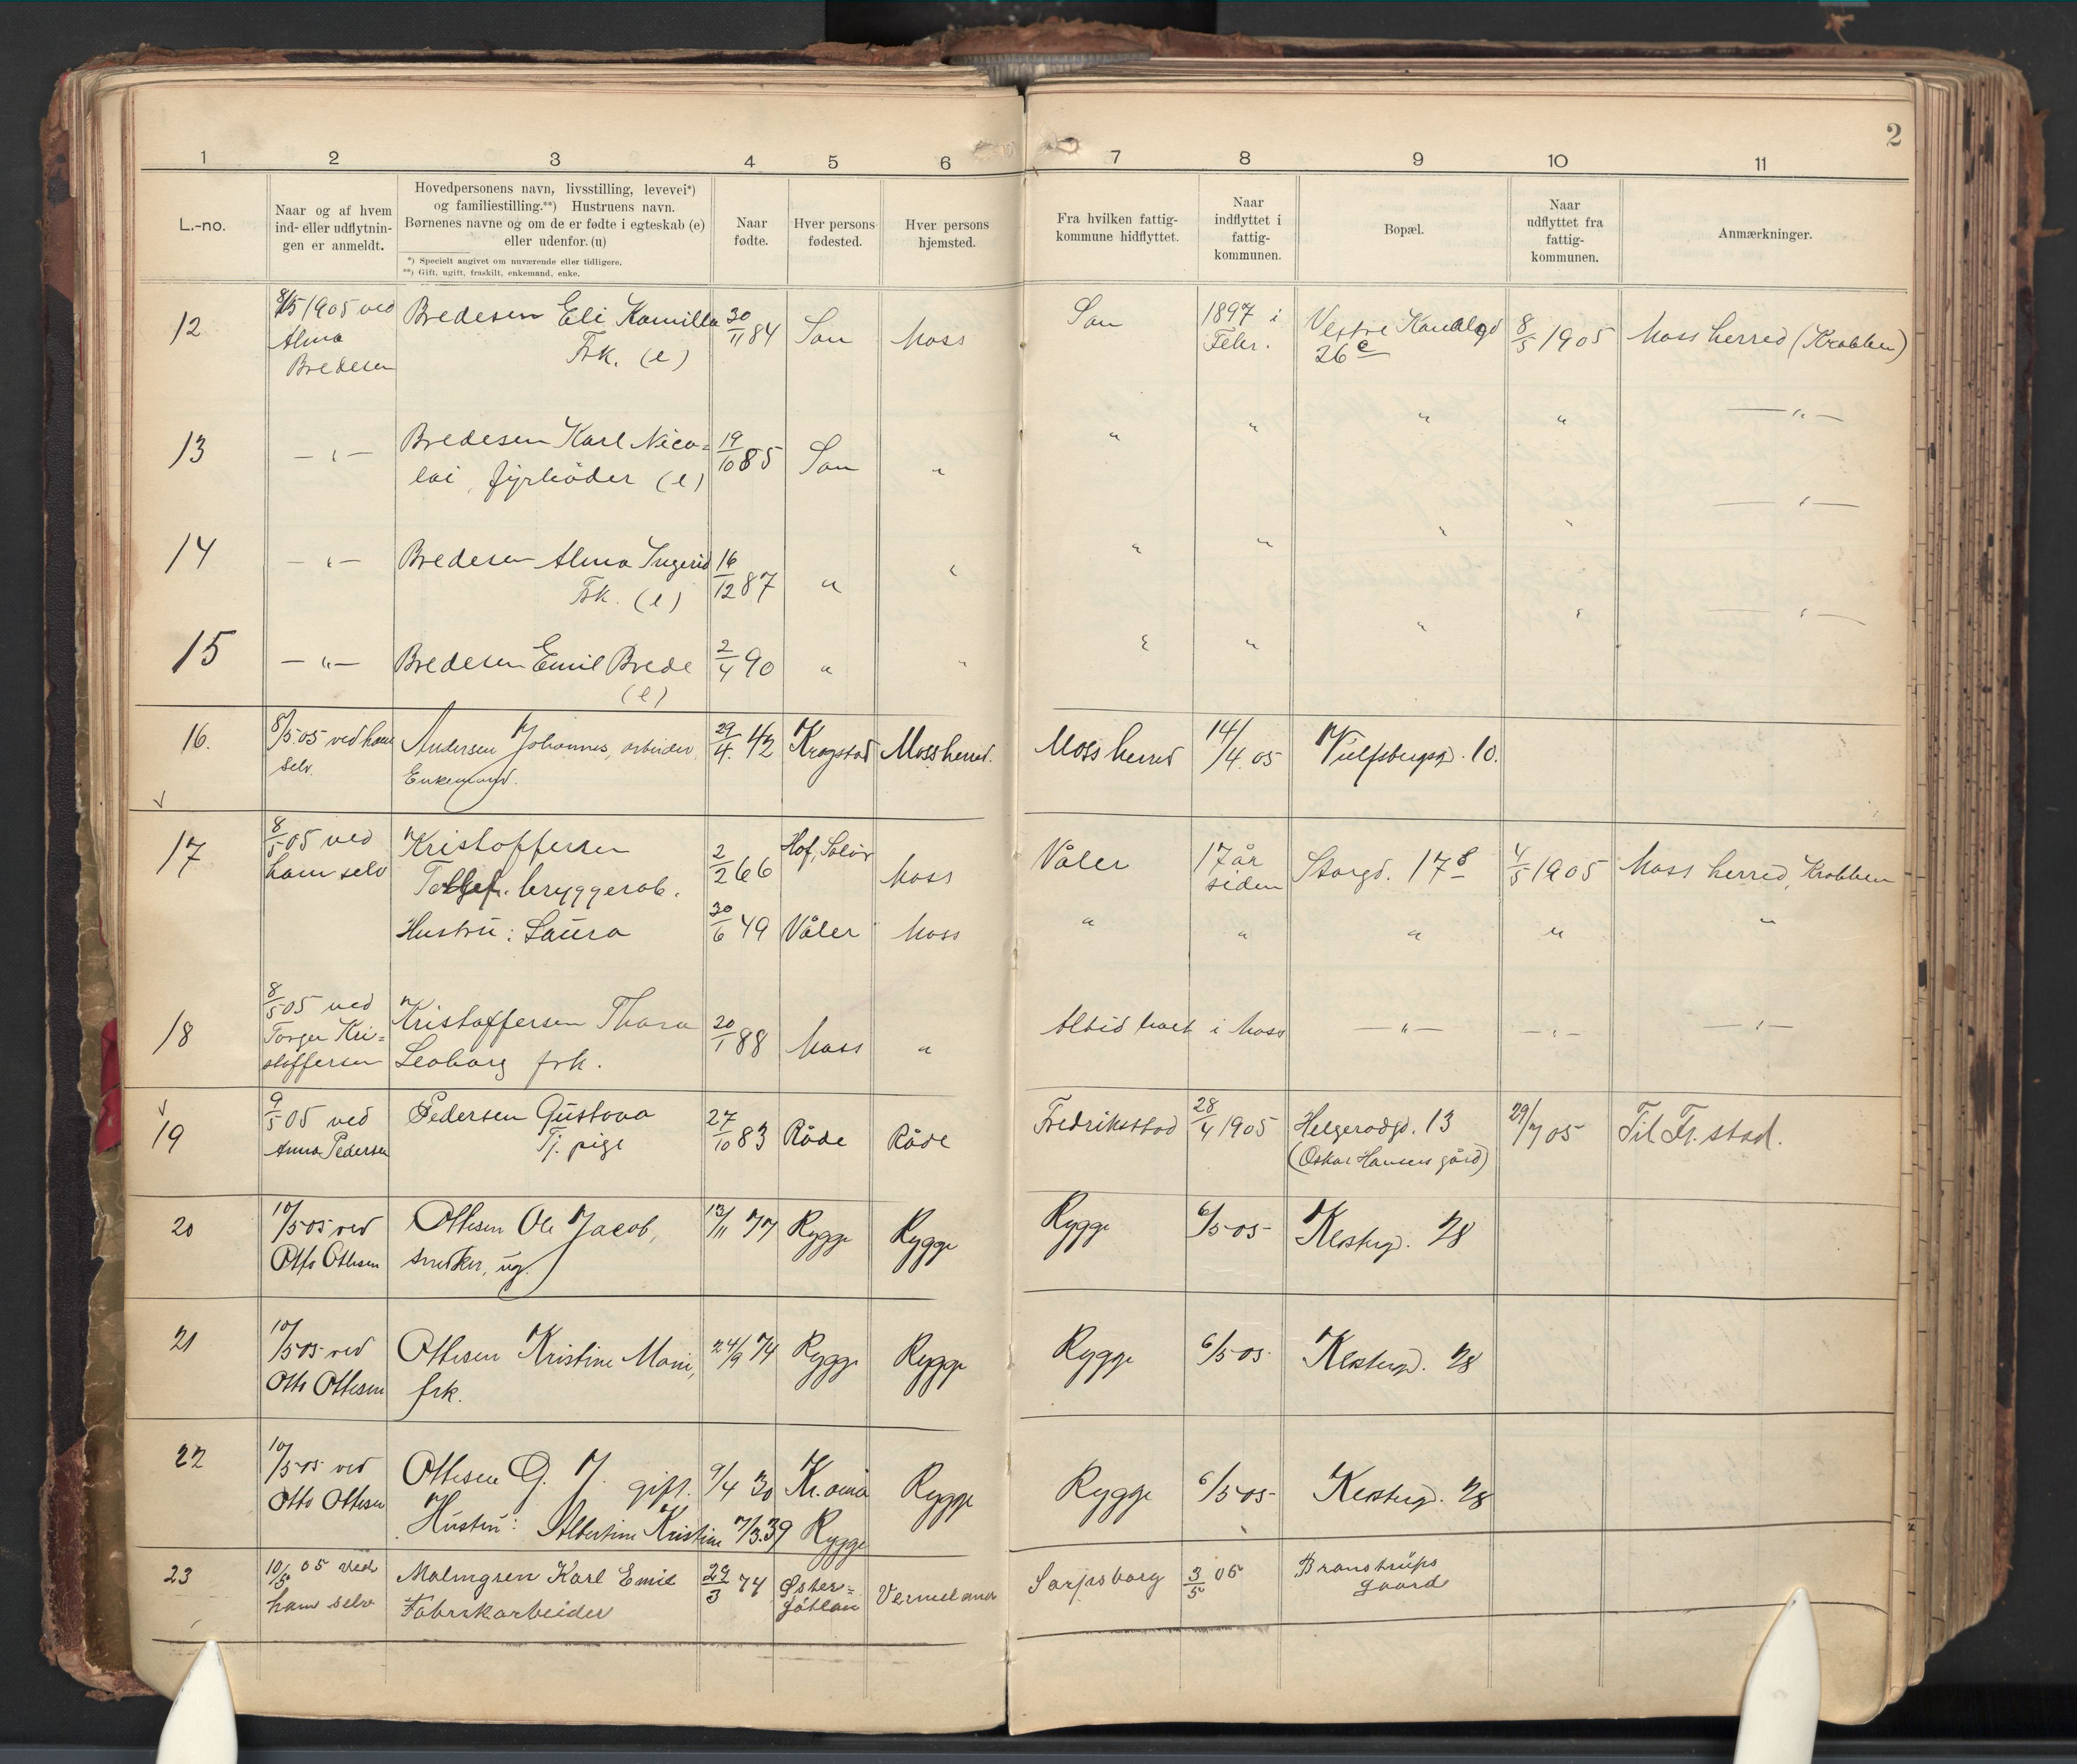 2
1 2 3 4 5 6 7 8 9 10 11
L.-no.
Naar og af hvem
ind- eller udflytnin-
gen er anmeldt.
Hovedpersonens navn, livsstilling, levevei*)
og familiestilling.**) Hustruens navn.
Børnenes navne og om de er fødte i egteskab (e)
eller udenfor. (u)
*) Specielt angivet om nuværende eller tidligere.
**) Gift, ugift, fraskilt, enkemand, enke.
Naar
fødte.
Hver persons
fødested.
Hver persons
hjemsted.
Fra hvilken fattig-
kommune hidflyttet.
Naar
indflyttet i
fattig-
kommunen.
Bopæl.
Naar
udflyttet fra
fattig-
kommunen.
Anmærkninger.
12 8/5 1905 ved Bredesen Eli Kamilla 30/11 84 Son Moss Son 1897 i Vestre Kanalgd 8/5 1905 Moss herred (Krabben)
Alma Frk. (e) Febr. 26 e
Bredesen
13 — " — Bredesen Karl Nico= 19/10 85 Son " " " " " — " —
lai, fyrbøder (e)
14 — " — Bredesen Alma Ingerid 16/12 87 " " " " " " — " —
Frk. (e)
15 — " — Bredesen Emil Brede 2/4 90 " " " " " " — " —
(e)
16. 8/5 05 ved ham Andersen Johannes, arbeider. 29/4. 42 Kragstad Moss herred. Moss herred 14/4. 05 Vulfsbergsgd. 10.
selv. Enkemand.
17 8/5 05 ved Kristoffersen 2/2 66 Hof, Solør Moss Våler 17 år Storgd. 17 4/5 1905 Moss herred, Krabben
ham selv bryggeriarb. siden
Hustru: Laura 30/6 49 Våler Moss " " " " "
18 8/5 05 ved Kristoffersen Thora 20/1 88 Moss " Altid boet i Moss — " — — " — — " —
Torger Kri=
stoffersen frk.
19 9/5 05 ved Pedersen Gustava 27/10 83 Råde Råde Fredriksstad 28/4 1905 Helgerødgd. 13 29/7 05 Til Fr. stad.
Anna Pedersen Tj. pige (Oskar Hansens gård)
20 10/5 05 ved Ottesen Ole Jacob, 13/11 77 Rygge Rygge Rygge 6/5 05 28
Otto Ottesen snedker, ug.
21 10/5 05 ved Ottesen Kristine Marie, 24/9 74 Rygge Rygge Rygge 6/5 05 28
Otto Ottesen frk.
22 10/5 05 ved Ottesen O. J. gift. 9/4 30 Kr.ania Rygge Rygge 6/5 05 28
Otto Ottesen Hustru: Albertine Kristine 7/3. 39 Rygge
23 10/5 05 ved Malmgren Karl Emil 29/3 74 Øster= Vermeland Sarpsborg 3/5 05 Branstrups
ham selv Fabrikarbeider götland gaard